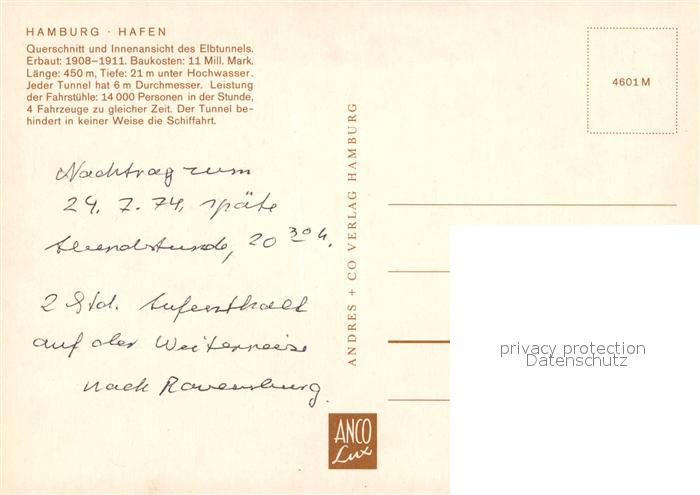 HAMBURG · HAFEN
Querschnitt und Innenansicht des Elbtunnels.
Erbaut: 1908-1911. Baukosten: 11 Mill. Mark.
Länge: 450 m, Tiefe: 21 m unter Hochwasser.
Jeder Tunnel hat 6 m Durchmesser. Leistung
der Fahrstühle: 14 000 Personen in der Stunde,
4 Fahrzeuge zu gleicher Zeit. Der Tunnel be-
hindert in keiner Weise die Schiffahrt.
4601 M
Nachtrag zum
24. 7. 74, späte
Abendstunde, 20 30 h.
2 Std. Aufenthalt
auf der Weiterreise
nach Ravensburg.
ANDRES + CO VERLAG HAMBURG
ANCO
Lux
privacy protection
Datenschutz